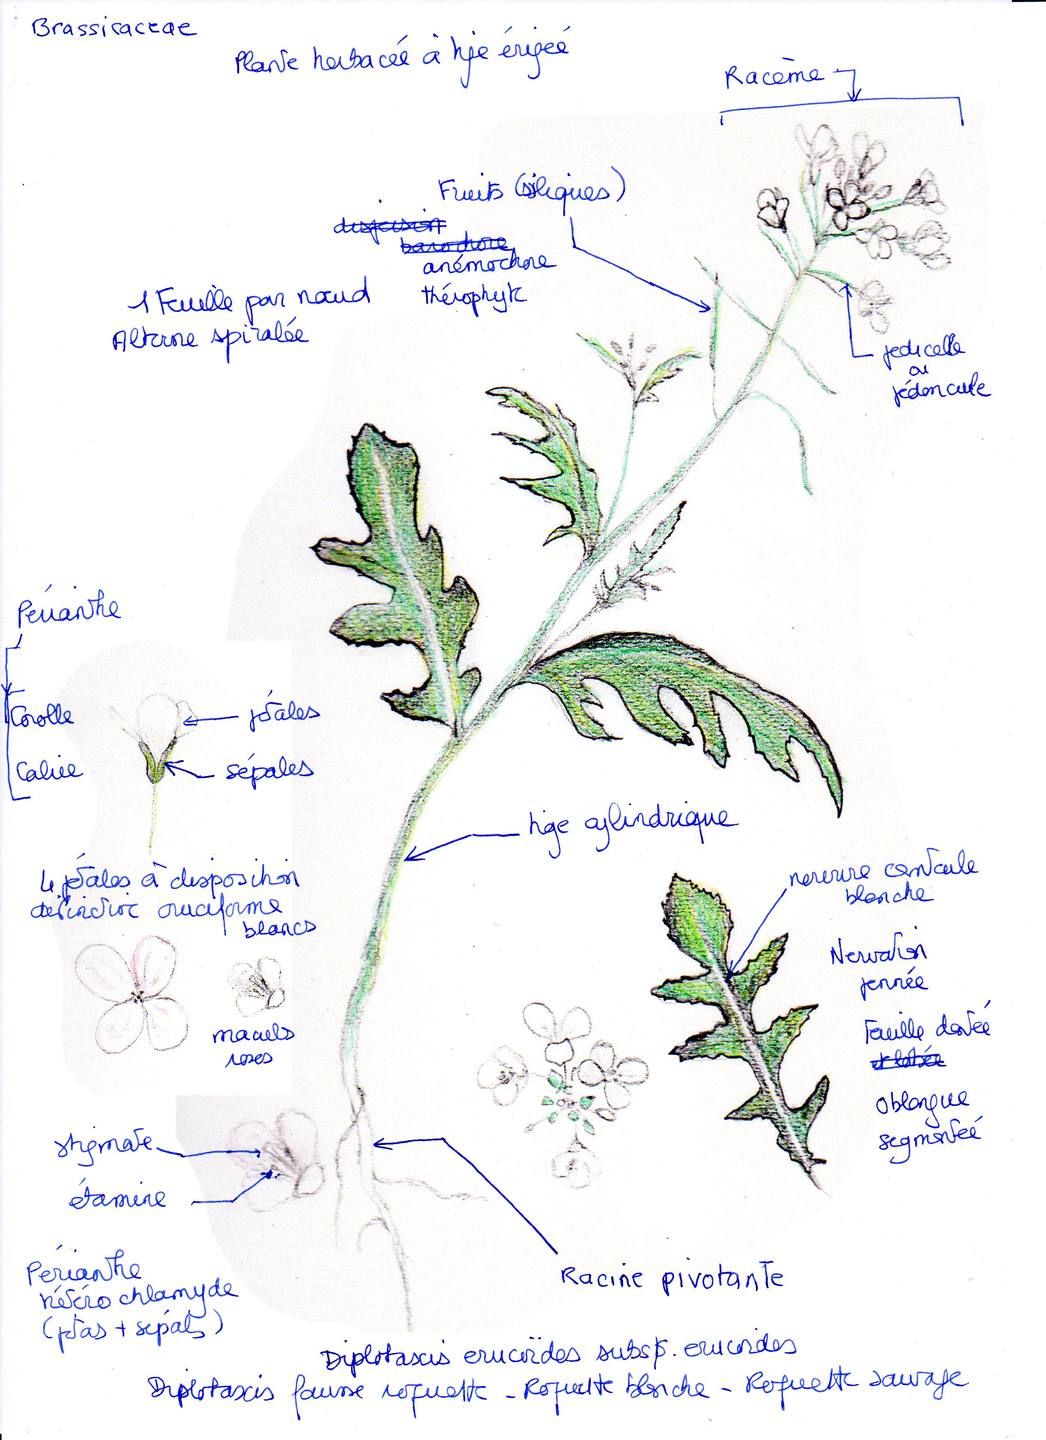 Brassicaceae
Plante herbacée à tige érigée
Racème
Fruits (siliques)
disjersion
barochore
anémochore
thérophyte
1 Feuille par nœud
Alterne spiralée
pedicelle
ou
pédoncule
Périanthe
Corolle
pétales
Calice
sépales
tige cylindrique
4 pétales à disposition
distinctive cruciforme
blancs
nervure centrale
blanche
Nervation
pennée
Feuille dentée
et lobée
oblongue
segmentée
roses
stigmate
étamine
Périanthe
hétéro chlamyde
(ptas + sépals)
Racine pivotante
Diplotaxis erucoïdes subsp. erucoides
Diplotaxis fausse roquette - Roquette blanche - Roquette sauvage